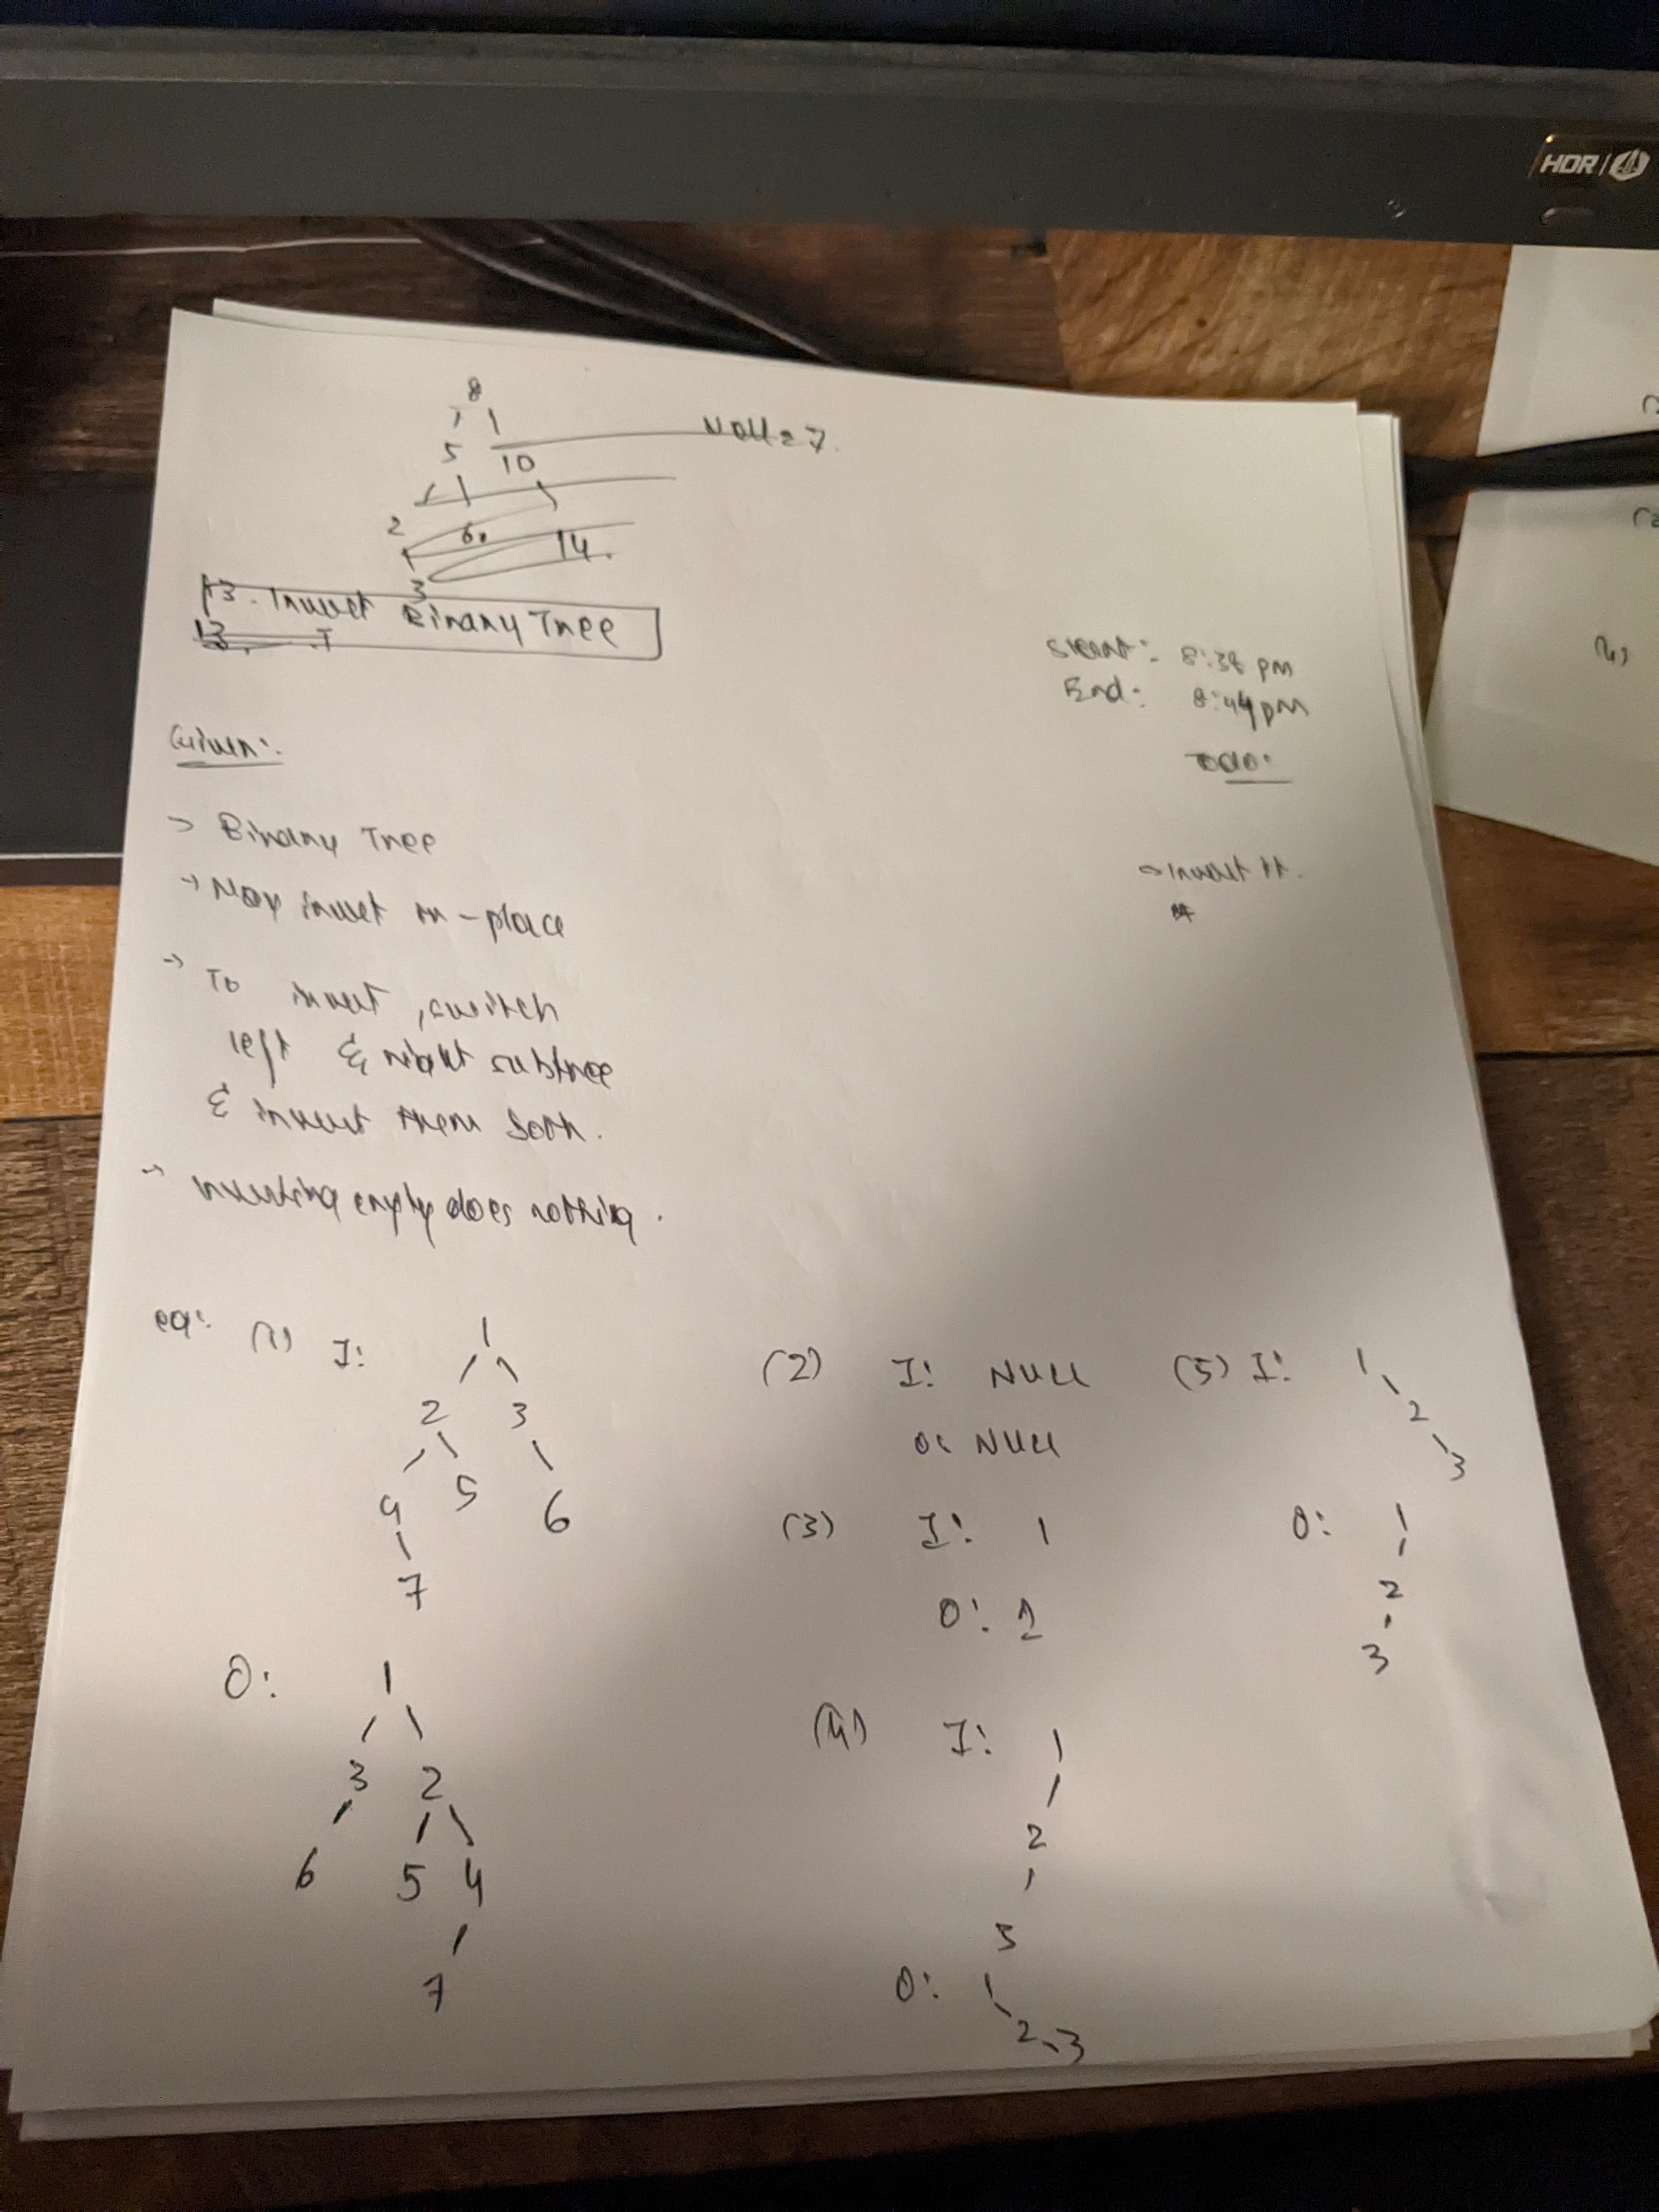 HDR
8
5 10
Val = 7.
2 6. 14.
3
13. Invert Binary Tree
13. I
Start: 8:38 pm
End: 8:44 pm
Given:
Todo:
→ Binary Tree
→ Invert it.
→ May invert in-place
→ To invert, switch
left & right subtree
& invert them both.
→ Inverting empty does nothing.
eg: (1) I: 1
2 3
4 5 6
7
O: 1
3 2
6 5 4
7
(2) I: NULL
O: NULL
(3) I: 1
O: 1
(4) I: 1
2
3
O: 1
2 3
(5) I: 1
2
3
O: 1
2
3